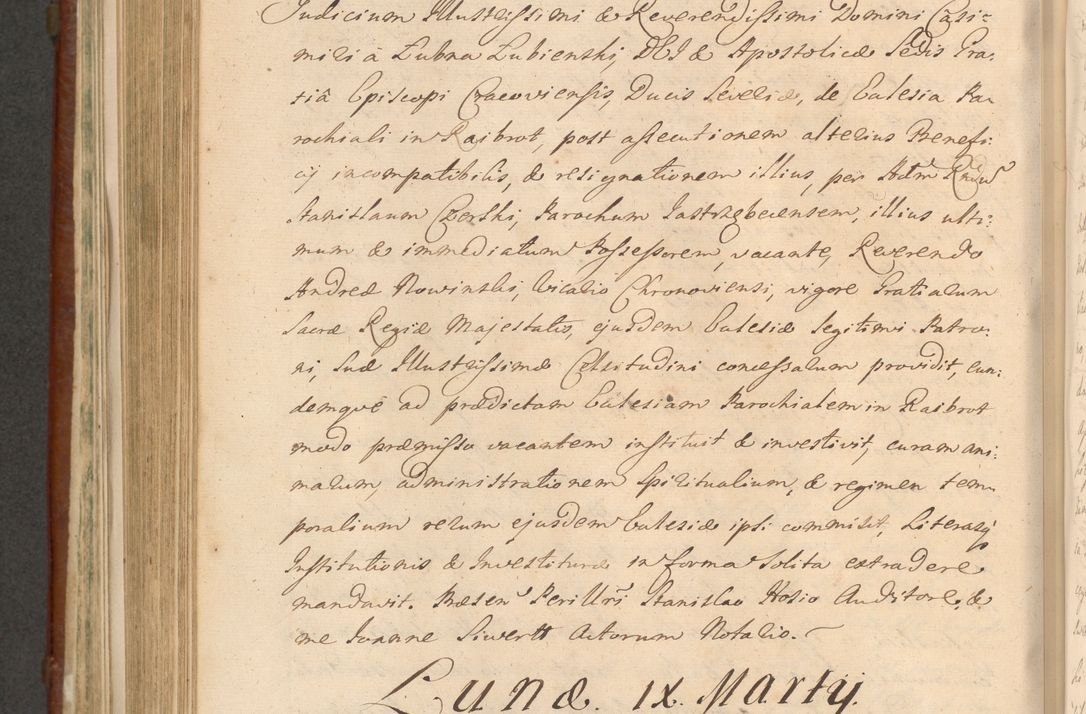 Judicium Illustrissimi & Reverendissimi Domini Casi-
miri à Lubna Lubienski, DEI & Apostolicæ Sedis Gra-
tiâ Episcopi Cracoviensis, Ducis Severiæ, de Ecclesia Pa-
rochiali in Raibrot, post assecutionem alterius Benefi-
cij incompatibilis, & resignationem illius, per Adm Rndum
Stanislaum Czerski, Parochum Jastrzębecensem, illius ulti-
mum & immediatum Possessorem, vacante, Reverendo
Andreæ Nowinski, Vicario Chronoviensi, vigore Gratiarum
Sacræ Regiæ Majestatis, ejusdem Ecclesiæ legitimi Patro-
ni, Suæ Illustrissimæ Celsitudini concessarum providit, eun-
demque ad prædictam Ecclesiam Parochialem in Raibrot
modo præmisso vacantem instituit & investivit, curam ani-
marum, administrationem Spiritualium, & regimen tem-
poralium rerum ejusdem Ecclesiæ ipsi commisit, Literasq
Institutionis & Investituræ in forma solita extradere
mandavit. Præsen Perillri Stanislao Hosio Auditore, &
me Joanne Siwertt Actorum Notario.
Lunæ. IX. Martij.